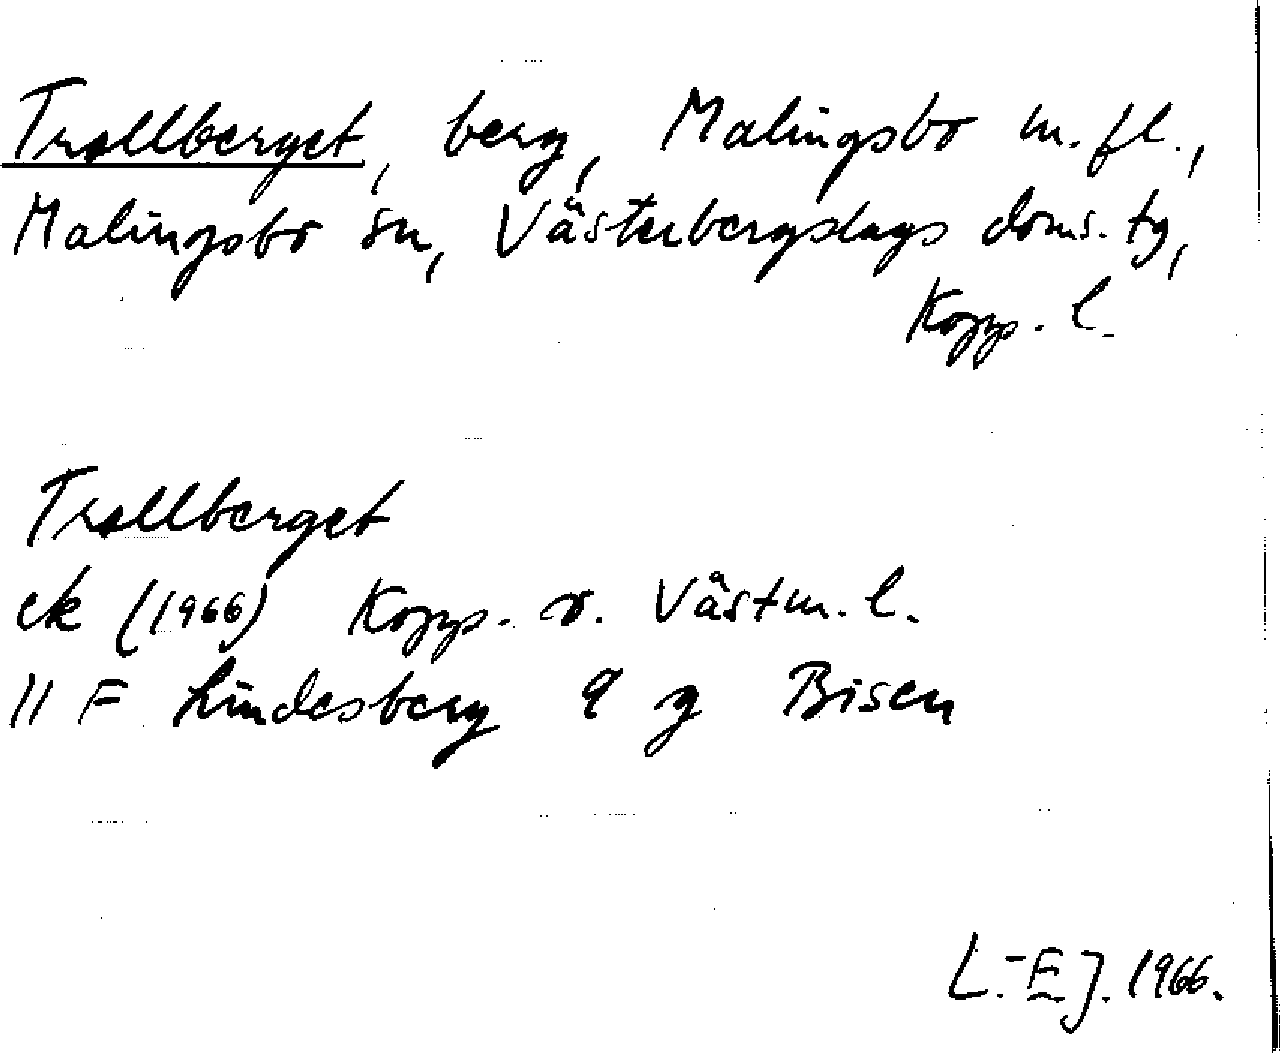 Trollberget, berg, Malingsbo m.fl.,
Malingsbo sn, Västerbergslags doms. tg,
Kopp. l.
Trollberget
ek (1966) Kopp. o. Västm. l.
11 F Lindesberg 9 g Bisen
L.-E J. 1966.